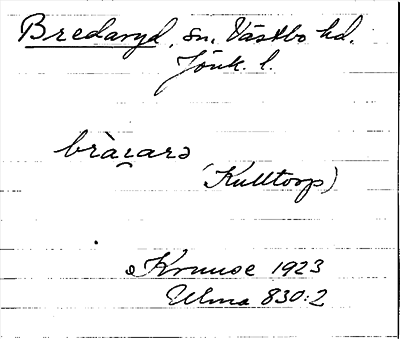 Bredaryd, sn. Västbo hd.
Jönk. l.
bràɩ̯arə
(Kulltorp)
Kruuse 1923
Ulma 830:2